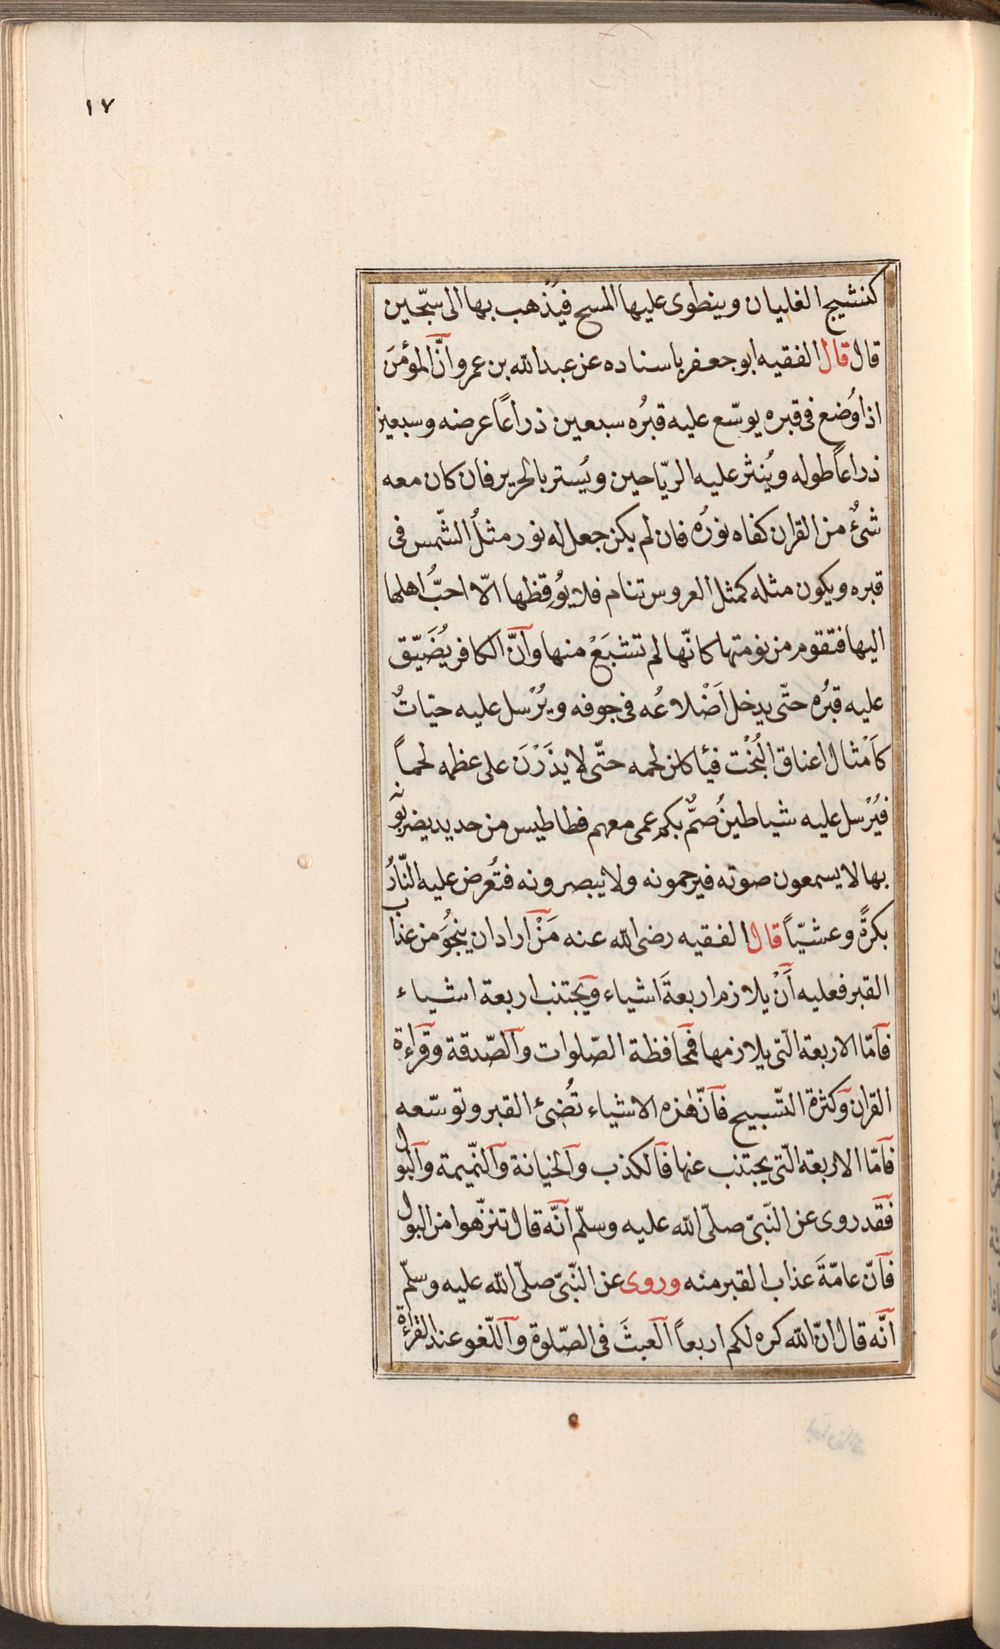 ١٧
كنشيج الغليان وينطوى عليها المسح فيُذهب بها الى سبّحين
قال قال الفقيه ابو جعفر باسناده عن عبد الله بن عمرو انّ المؤمنَ
اذا وُضع فى قبره يوسّع عليه قبرُه سبعين ذراعًا عرضه وسبعين
ذراعًا طوله ويُنثر عليه الريّاحين ويُستر بالحرير فان كان معه
شئٌ من القران كفاه نورُه فان لم يكن جعل له نور مثلُ الشّمس فى
قبره ويكون مثله كمثل العروس تنام فلا يوُقظها الّا احبُّ اهلها
اليها فتقوم من نومتها كانّها لم تشبَعْ منها وانّ الكافر يُضَيّق
عليه قبرُه حتّى يدخل اَضْلاعُه فى جوفه ويُرْسل عليه حيّاتٌ
كَاَمْثال اعناق البُخْت فيأكلن لحمه حتّى لا يذَرْنَ على عظمه لحماً
فيُرْسل عليه شياطينُ صمٌّ بكم عمى معهم فطاطيس من حديد يضربُونَه
بها لا يسمعون صوته فيرحمونه ولا يبصرونه فتُعرض عليه النّارُ
بكرةً وعشيّاً قال الفقيه رضى الله عنه مَنْ اراد ان ينجُوَ من عذاب
القبر فعليه اَنْ يلازم اربعةَ اشياء ويجتنب اربعة اشياء
فامّا الاربعة الّتى يلازمها فمحافظة الصّلوات والصّدقة وقراءة
القران وكثرة التّسبيح فانّ هٰذه الاشياء تُضِئُ القبر وتوسّعه
فامّا الاربعة الّتى يجتنب عنها فالكذب والخيانة والنّميمة والبول
فقد روى عن النّبىّ صلّى الله عليه وسلّم انّه قال تنزّهوا من البول
فانّ عامّةَ عذاب القبر منه وروى عن النّبىّ صلّى الله عليه وسلّم
انّه قال انّ الله كره لكم اربعاً العبثَ فى الصّلوة واللّغو عند القراءة